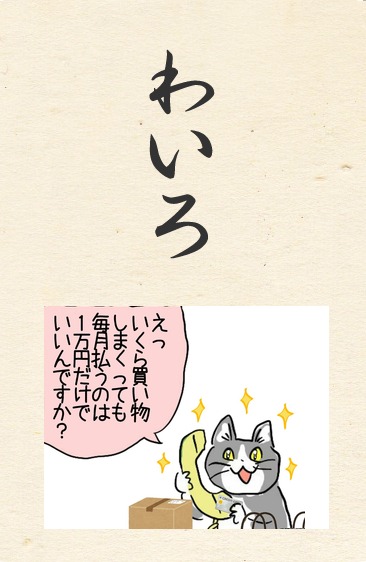 わいろ
えっ
いくら買い物
しまくっても
毎月払うのは
１万円だけで
いいんですか？